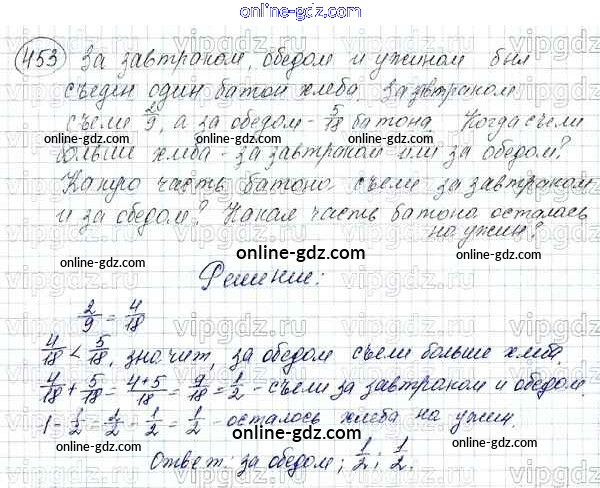 online-gdz.com
453 За завтраком, обедом и ужином был
съеден один батон хлеба. За завтраком
съели 2/9, а за обедом - 5/18 батона. Когда съели
online-gdz.com online-gdz.com
больше хлеба - за завтраком или за обедом?
Какую часть батона съели за завтраком
и за обедом? Какая часть батона осталась
на ужин?
online-gdz.com
online-gdz.com online-gdz.com
Решение:
2/9 = 4/18
online-gdz.com
4/18 < 5/18, значит, за обедом съели больше хлеба.
4/18 + 5/18 = 4+5/18 = 9/18 = 1/2 - съели за завтраком и обедом.
1 - 1/2 = 2/2 - 1/2 = 1/2 - осталось хлеба на ужин.
online-gdz.com online-gdz.com
Ответ: за обедом; 1/2; 1/2.
online-gdz.com